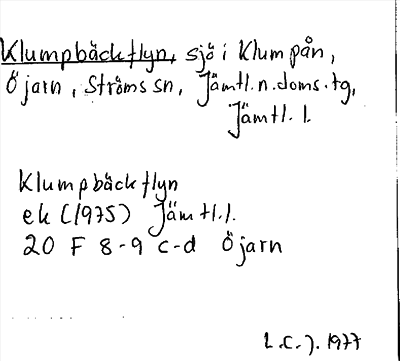 Klumpbäckflyn, sjö i Klumpån,
Öjarn, Ströms sn, Jämtl.n.doms.tg,
Jämtl. l.
Klumpbäckflyn
ek (1975) Jämtl.l.
20 F 8-9 c-d Öjarn
L.C.J. 1977